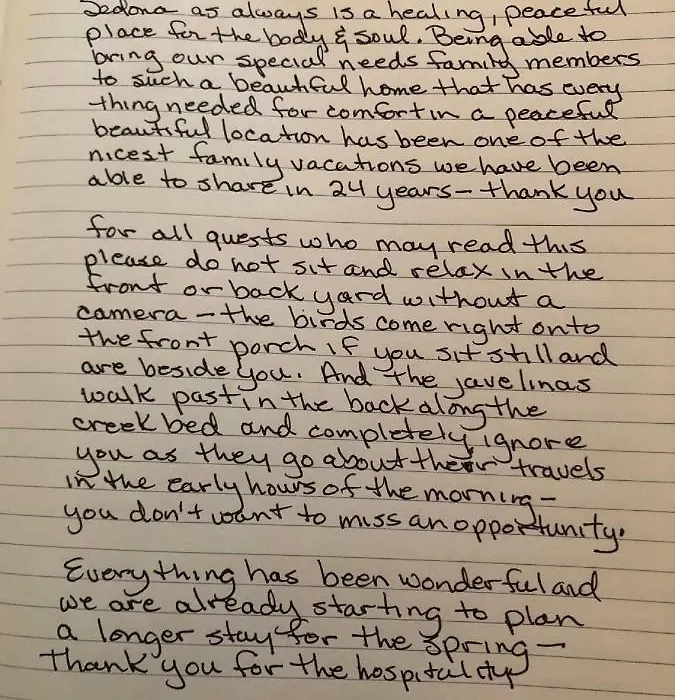 Sedona as always is a healing, peaceful
place for the body & soul. Being able to
bring our special needs family members
to such a beautiful home that has every
thing needed for comfort in a peaceful
beautiful location has been one of the
nicest family vacations we have been
able to share in 24 years - thank you
for all quests who may read this
please do not sit and relax in the
front or back yard without a
camera - the birds come right onto
the front porch if you sit still and
are beside you. And the javelinas
walk past in the back along the
creek bed and completely ignore
you as they go about their travels
in the early hours of the morning -
you don't want to miss an opportunity.
Everything has been wonderful and
we are already starting to plan
a longer stay for the spring -
thank you for the hospitality